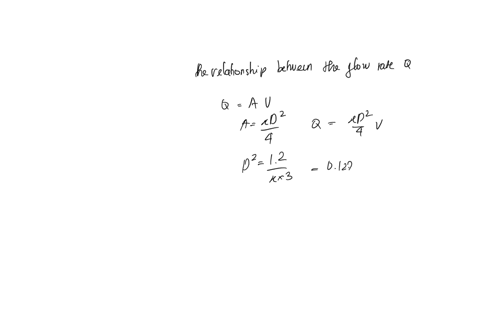 The relationship between the flow rate Q
Q = A V
A = πD²/4 Q = πD²/4 V
D² = 1.2/π×3 = 0.127